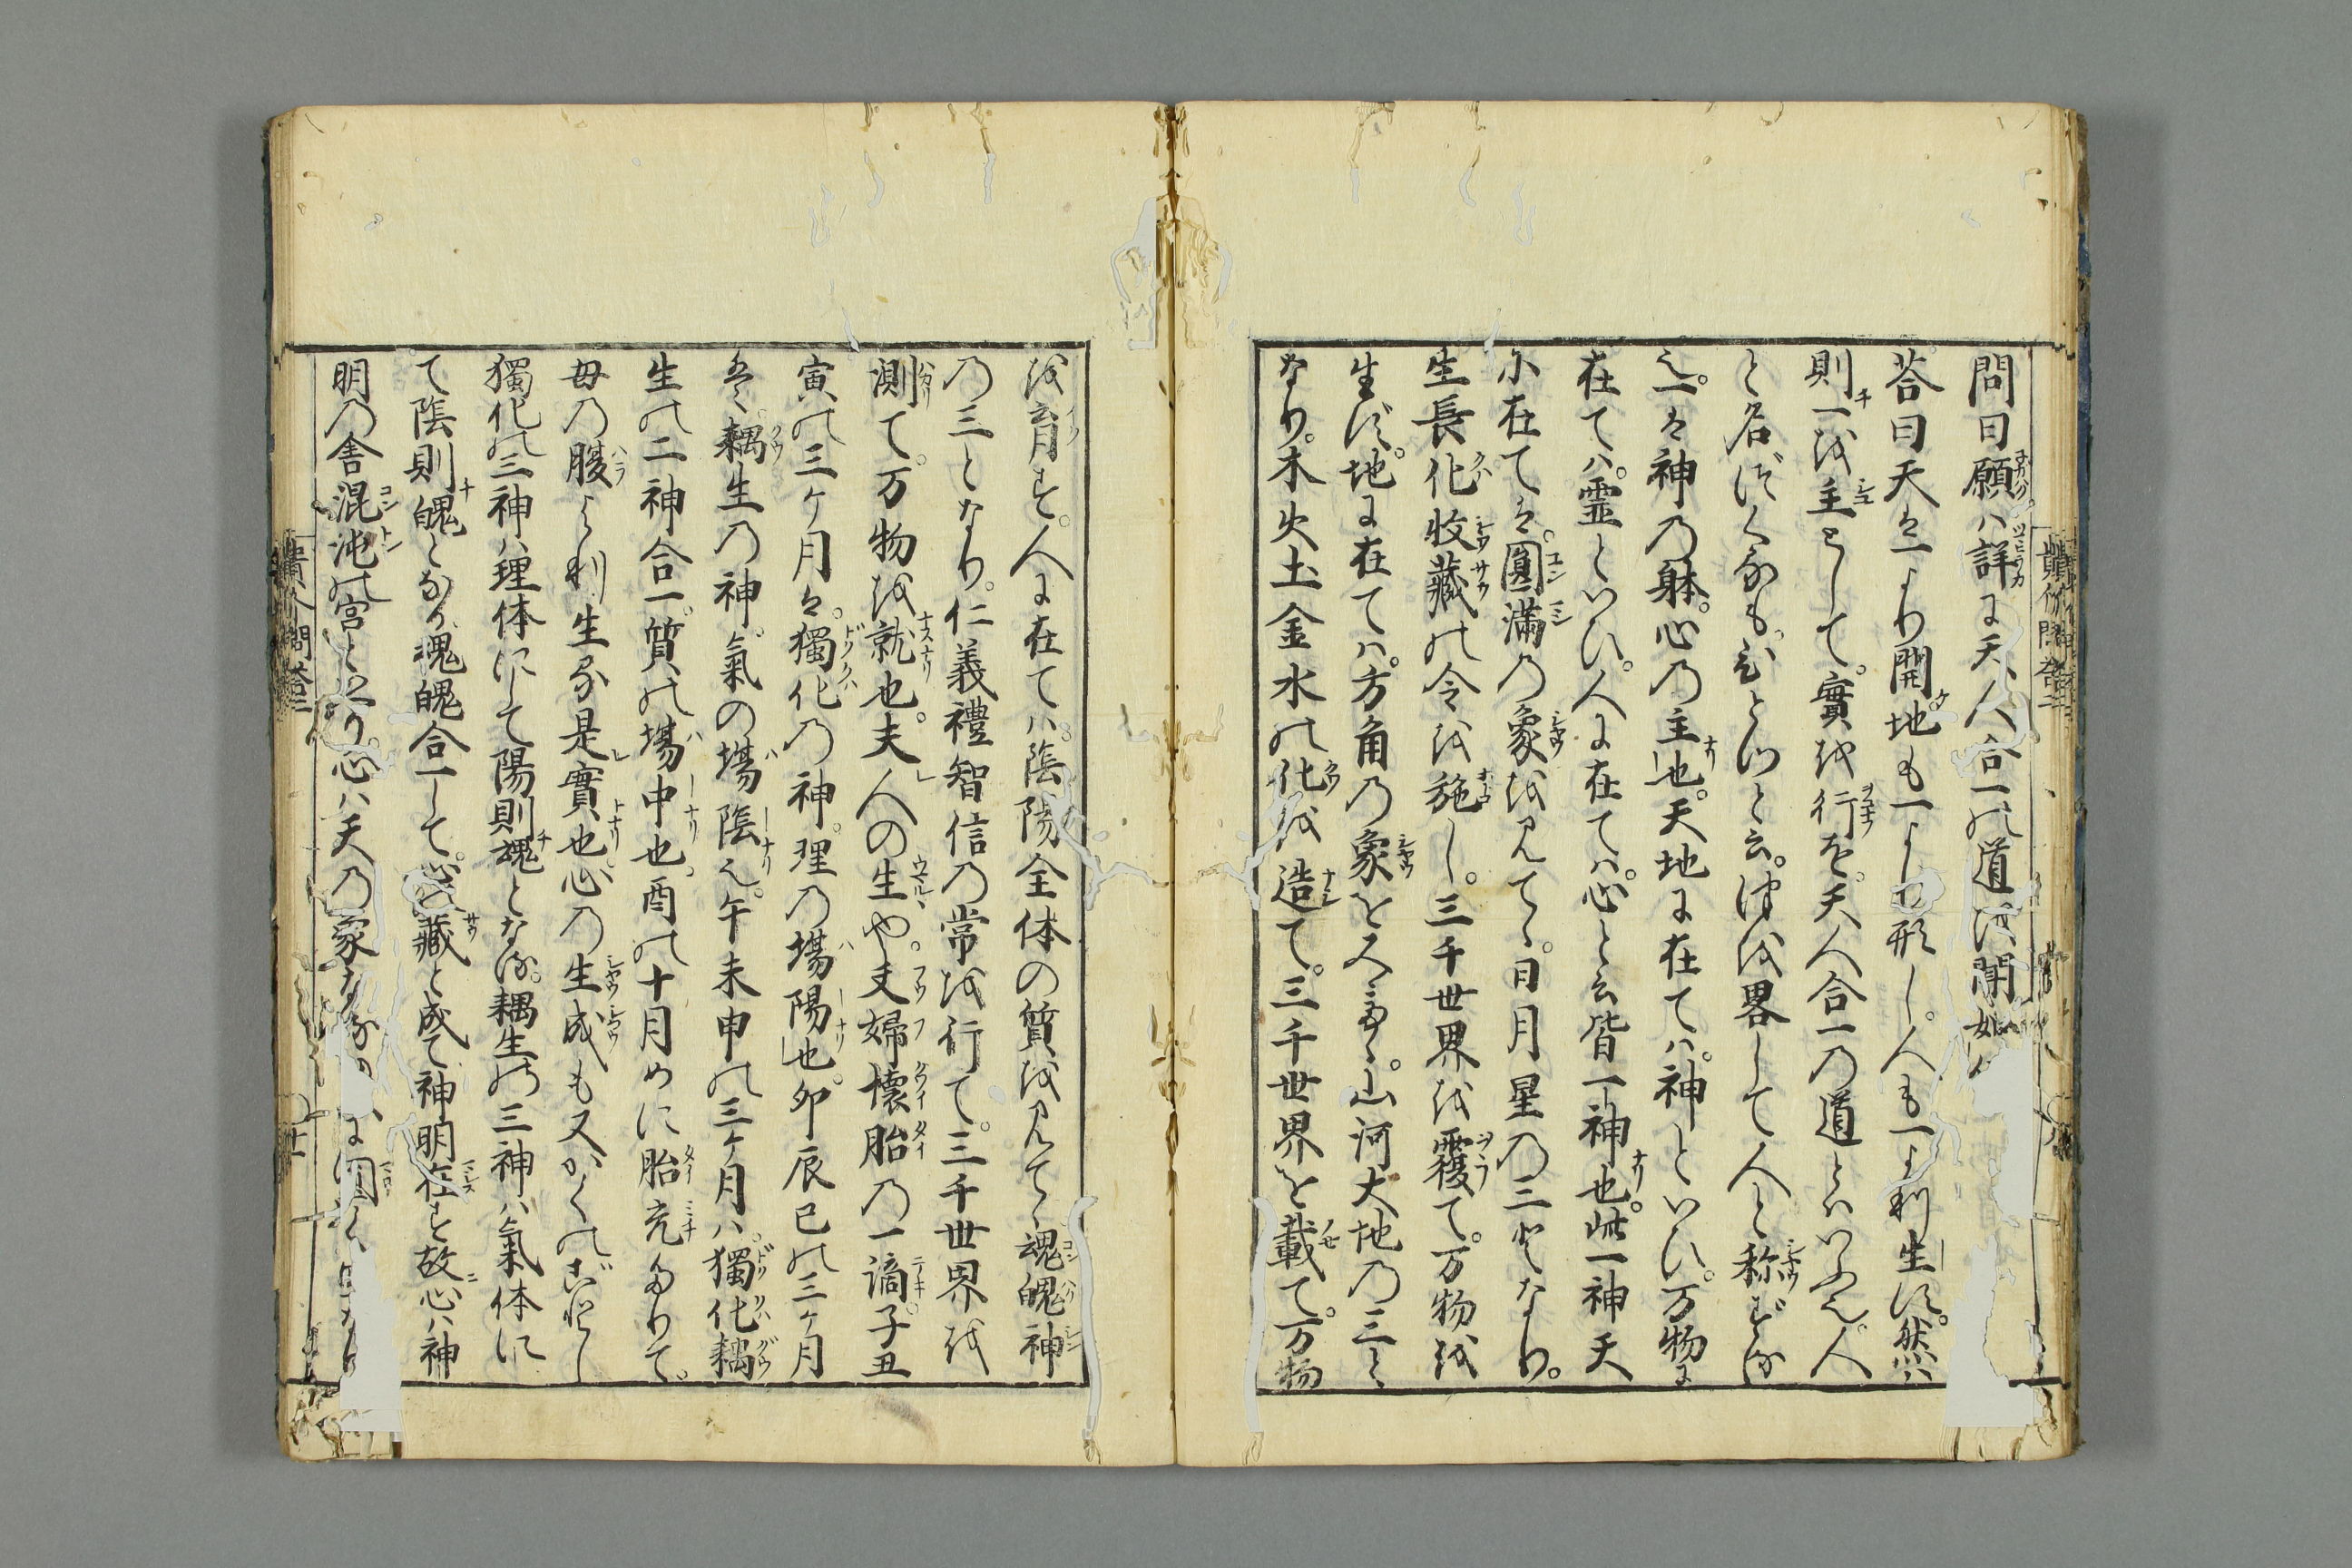 問曰願ハ詳に天人合一の道を聞
荅曰天は一より開地も一より形し人も一より生す然ハ
則一を主として實を行を天人合一の道とハいふ也人
と名づくるも ひとつと云 津を畧して人と称ずる
也一は神の躰心の主也天地に在てハ神といひ万物に
在てハ霊といひ人に在てハ心と云皆一神也此一神天
に在ては圓満の象を見てハ日月星の三となり
生長化收藏の令を施し三千世界を覆て万物を
生ず地に在てハ方角の象を 山河大地の三と
なり木火土金水の化を造て三千世界を載て万物
を育す人に在てハ陰陽全体の質を見て魂魄神
の三となり仁義禮智信の常を行て三千世界を
測て万物を就也夫人の生や夫婦懐胎の一滴子丑
寅の三ケ月は獨化の神理の塲陽也卯辰巳の三ケ月
は耦生の神氣の塲陰也午未申の三ケ月ハ獨化耦
生の二神合一質の塲中也酉の十月めに胎充たりて
母の腹より生る是實也心の生成も又かくのごとし
獨化の三神ハ理体にして陽則魂となる耦生の三神ハ氣体に
て陰則魄となる魂魄合一して心藏と成て神明在す故心ハ神
明の舎混沌の宮と云り心ハ天の象なる